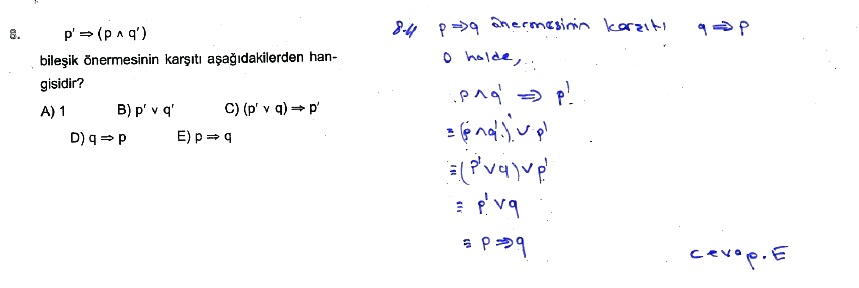 8. p′ ⇒ (p ∧ q′)
bileşik önermesinin karşıtı aşağıdakilerden han-
gisidir?
A) 1 B) p′ ∨ q′ C) (p′ ∨ q) ⇒ p′
D) q ⇒ p E) p ⇒ q
p ⇒ q önermesinin karşıtı q ⇒ p
O halde,
p ∧ q′ ⇒ p′
≡ (p ∧ q′)′ ∨ p′
≡ (p′ ∨ q) ∨ p′
≡ p′ ∨ q
≡ p ⇒ q
cevap. E